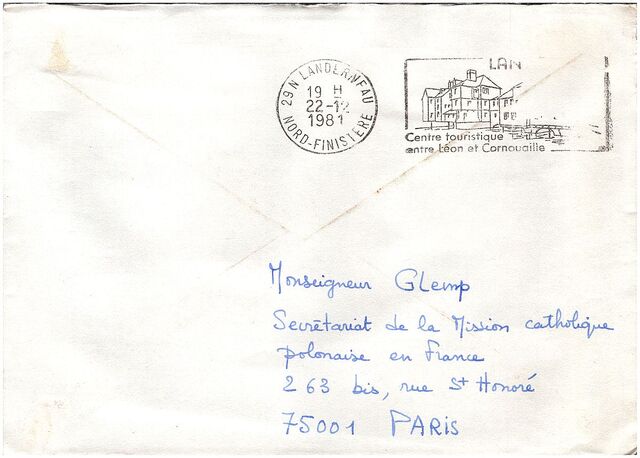 29N LANDERNEAU
19 H
22-12
1981
NORD-FINISTERE
LAN
Centre touristique
entre Léon et Cornouaille
Monseigneur Glemp
Secrétariat de la Mission catholique
polonaise en France
263 bis, rue St Honoré
75001 PARIS